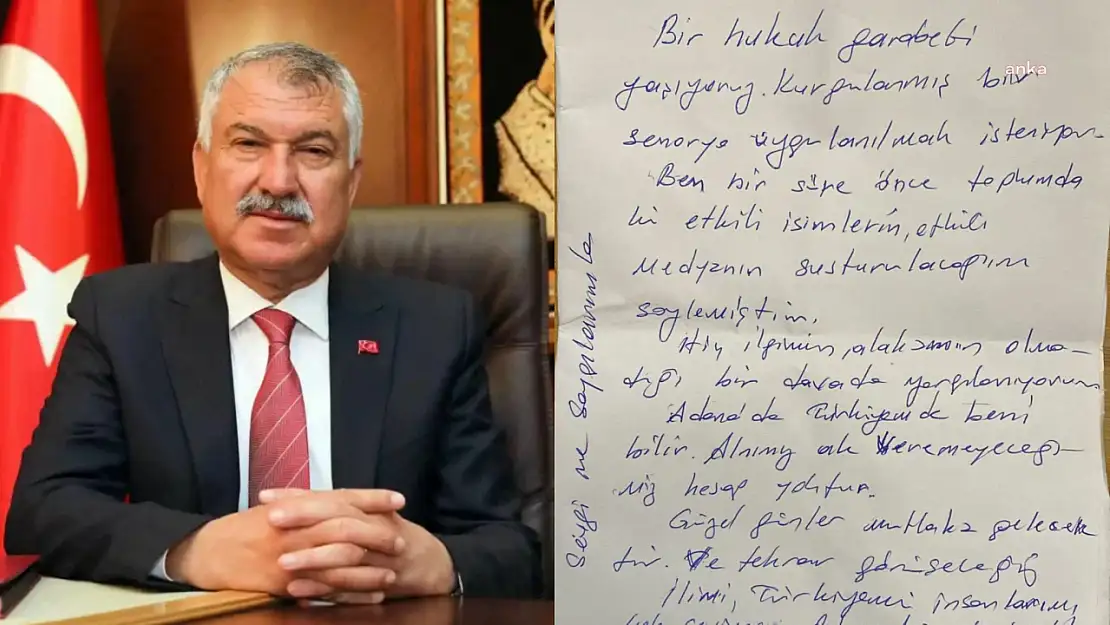 Bir hukuk garabeti
anka
yaşıyoruz. Kurgulanmış bir
senaryo uygulanılmak isteniyor.
Ben bir süre önce toplumda
ki etkili isimlerin, etkili
medyanın susturulacağını
söylemiştim.
Hiç ilgimin, alakamın olma-
dığı bir davada yargılanıyorum
Adana'da Türkiyemde beni
bilir. Alnımız ak veremeyeceği-
miz hesap yoktur.
Güzel günler mutlaka gelecek
tir. Ve tekrar görüşeceğiz
İlimi, Türkiyemi insanlarımı
Sevgi ve Saygılarımla